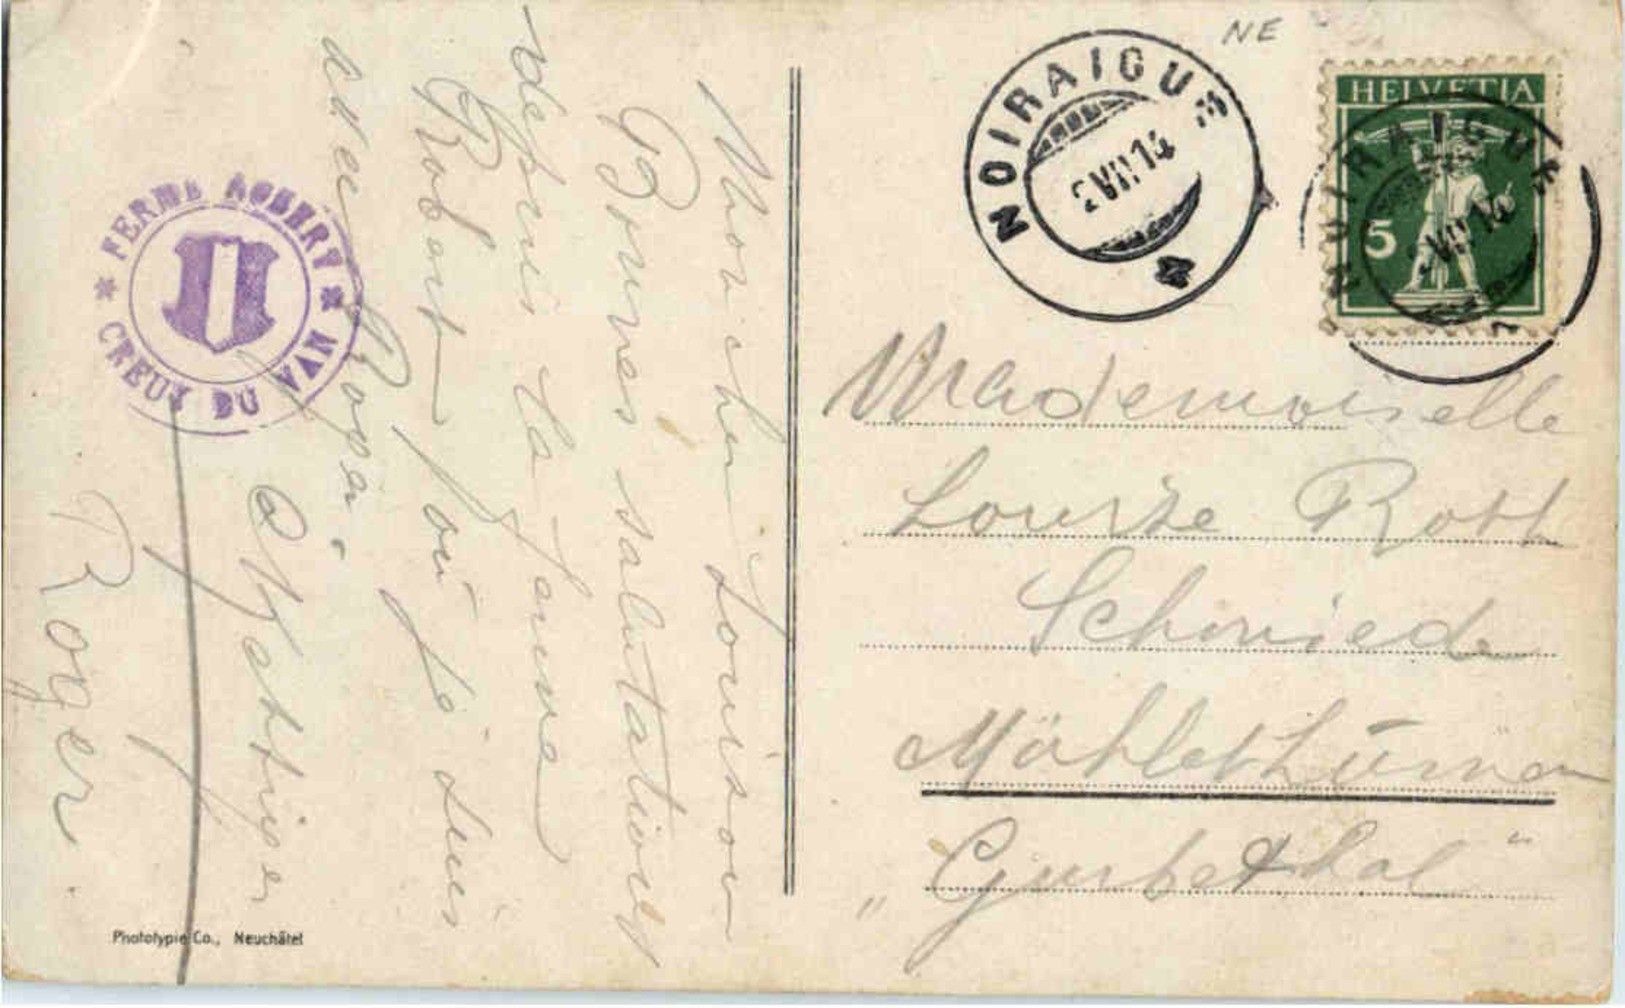 Mon cher Louison
Bonnes salutations
depuis la ferme
Robert où je suis
avec Papa.
Roger
FERME ROBERT
CREUX DU VAN
Phototypie Co., Neuchâtel
NE
NOIRAIGUE
2 VII 14
HELVETIA
5
NOIRAIGUE
2 VII 14
Mademoiselle
Louise Roth
Schmiede
Mühlethurnen
"Gürbethal"